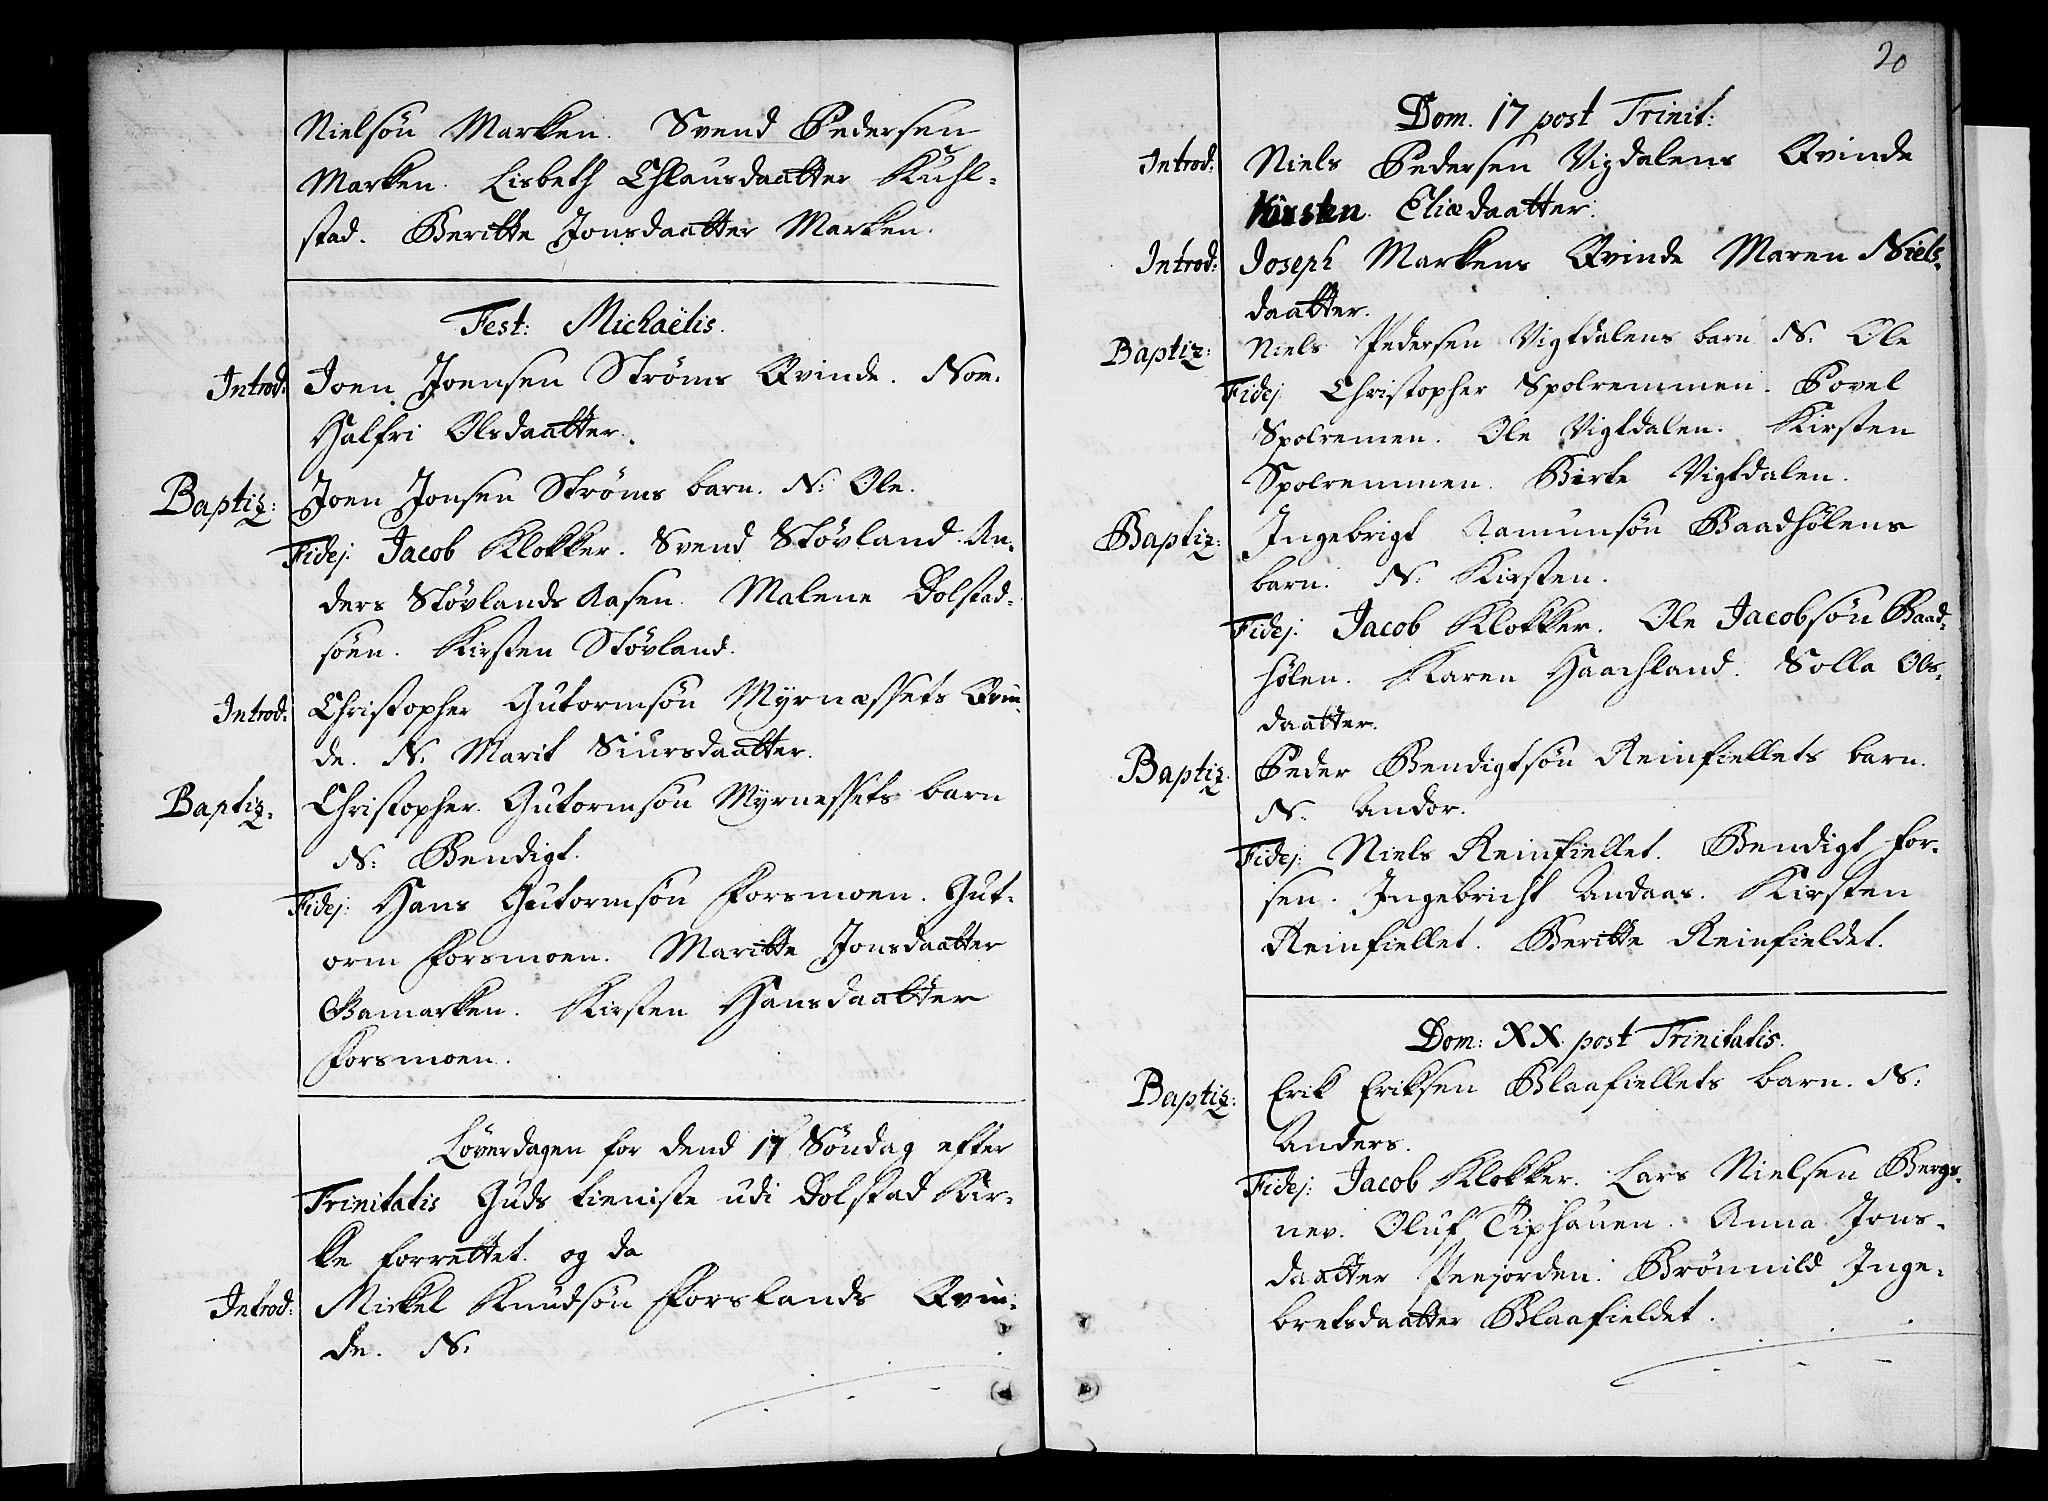 Nielsøn Marken. Svend Pedersen
Marken. Lisbeth Chlausdaatter Kuhl-
stad. Beritte Jonsdaatter Marken.
Fest: Michaëlis.
Introd: Joen Joensen Strøms Qvinde. Nom.
Halfri Olsdaatter.
Baptiz: Joen Jonsen Strøms barn. N: Ole.
Fidej: Jacob Klokker. Svend Støvland. An-
ders Støvlands Aasen. Malene Dolstad-
søen. Kirsten Støvland.
Introd: Christopher Gutormsøn Myrnæssets Qvin-
de. N. Marit Siursdaatter.
Baptiz: Christopher Gutormsøn Myrnessets barn
N: Bendigt.
Fidej: Hans Gutormsøn Forsmoen. Gut-
orm Forsmoen. Maritte Jonsdaatter
Bamarken. Kirsten Hansdaatter
Forsmoen.
Løverdagen for dend 17 Søndag efter
Trinitatis Guds tieniste udi Dolstad Kir-
ke forrettet og da
Introd: Mickel Knudsøn Forslands Qvin-
de. N:
20
Dom. 17 post Trinit:
Introd: Niels Pedersen Vigdalens Qvinde
Kirsten Eliædaatter.
Introd: Joseph Markens Qvinde Maren Niels-
daatter.
Baptiz: Niels Pedersen Vigtdalens barn N. Ole
Fidej Christopher Spolremmen. Povel
Spolremen. Ole Vigtdalen. Kirsten
Spolremmen. Birte Vigtdalen.
Baptiz: Ingebrigt Aamunsøn Baadhølens
barn. N: Kirsten.
Fidej: Jacob Klokker. Ole Jacobsøn Baad-
hølen. Karen Haachland. Solla Ols-
daatter.
Baptiz: Peder Bendigtsøn Reinfiellets barn.
N. Andor.
Fidej: Niels Reinfiellet. Bendigt For-
sen. Ingebricht Andaas. Kirsten
Reinfiellet. Beritte Reinfieldet.
Dom: XX post Trinitatis.
Baptiz: Erik Eriksen Blaafiellets barn. N:
Anders.
Fidej: Jacob Klokker. Lars Nielsen Bergs-
nev. Oluf Piphauen. Anna Jons-
daatter Peejorden. Brønnild Inge-
bretsdaatter Blaafieldet.